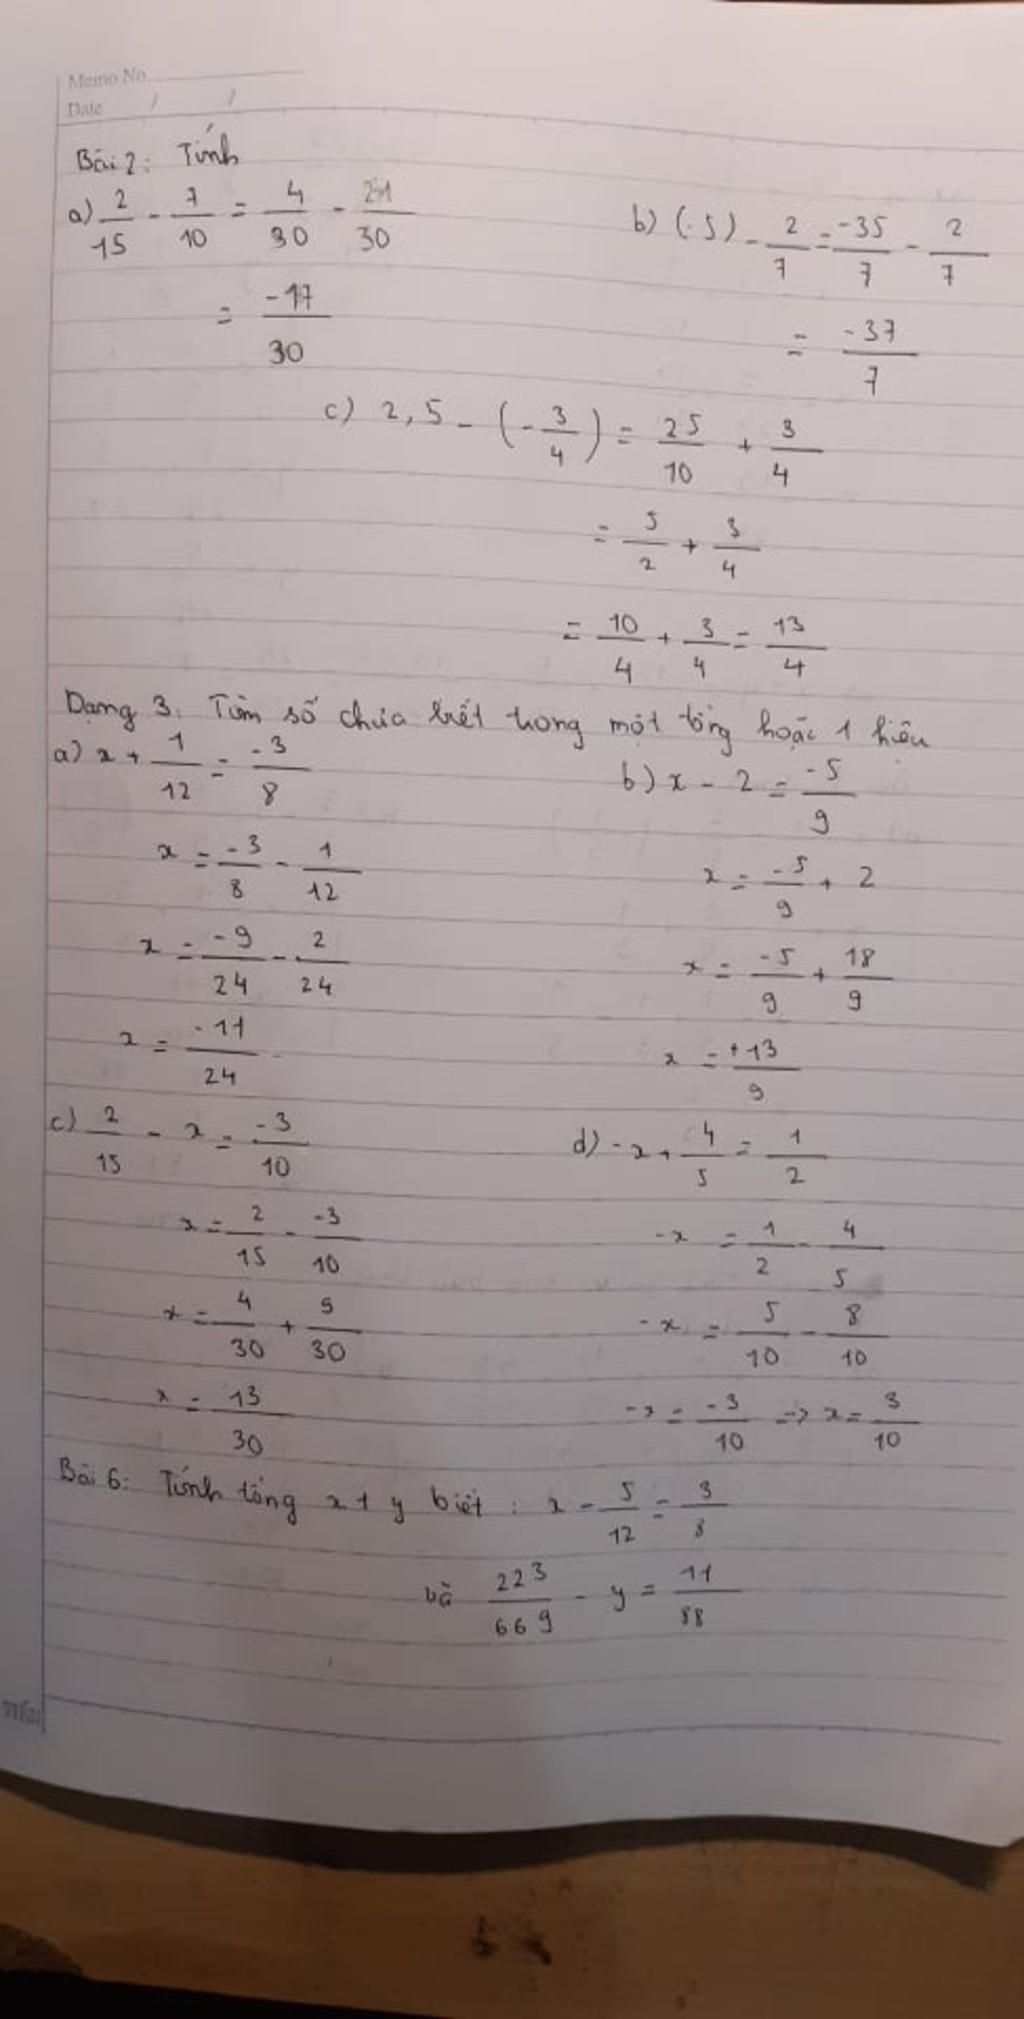 Memo No.
Date / /
Bài 2: Tính
a) 2/15 - 7/10 = 4/30 - 21/30
= -17/30
b) (-5) - 2/7 = -35/7 - 2/7
= -37/7
c) 2,5 - (-3/4) = 25/10 + 3/4
= 5/2 + 3/4
= 10/4 + 3/4 = 13/4
Dạng 3: Tìm số chưa biết trong một tổng hoặc 1 hiệu
a) x + 1/12 = -3/8
x = -3/8 - 1/12
x = -9/24 - 2/24
x = -11/24
b) x - 2 = -5/9
x = -5/9 + 2
x = -5/9 + 18/9
x = +13/9
c) 2/15 - x = -3/10
x = 2/15 - -3/10
x = 4/30 + 9/30
x = 13/30
d) -x + 4/5 = 1/2
-x = 1/2 - 4/5
-x = 5/10 - 8/10
-x = -3/10 => x = 3/10
Bài 6: Tính tổng x + y biết: x - 5/12 = 3/8
và 223/669 - y = 11/88